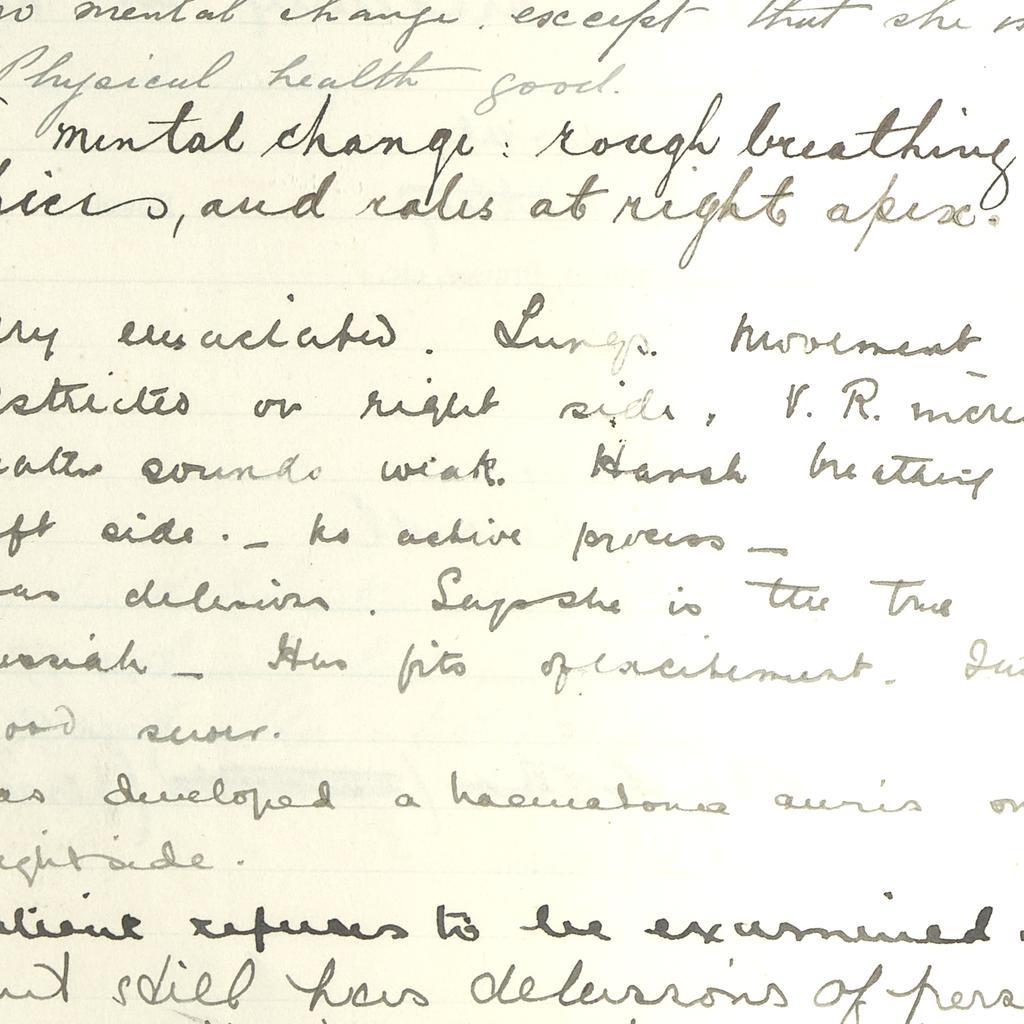 no mental change. except that she is
Physical health good.
mental change: rough breathing
, and rales at right apex.
emaciated. Lungs. Movement
on right side, V. R. incre
sounds weak. Harsh breathing
ft side. - No active process -
as delusions. Says she is the true
essiah - Has fits of excitement.
ood sewer.
as developed a haematoma auris on
ight side.
atient refuses to be examined.
still has delusions of pers